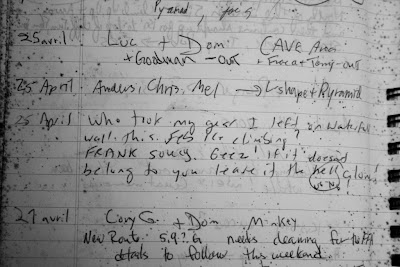 Pyramid
25 avril Luc + Dom CAVE
+ Goodman - out + Tony - out
25 April Anders, Chris, Mel → L shape + Pyramid
25 April Who took my gear I left on Waterfall
wall. This. Feb Ice climbing?
FRANK Soucy. Geez! if it doesn't
belong to you leave it the hell alone!
27 avril Cory G. + Dom Monkey
New Route 5.9? G needs cleaning for the FA
details to follow this weekend.